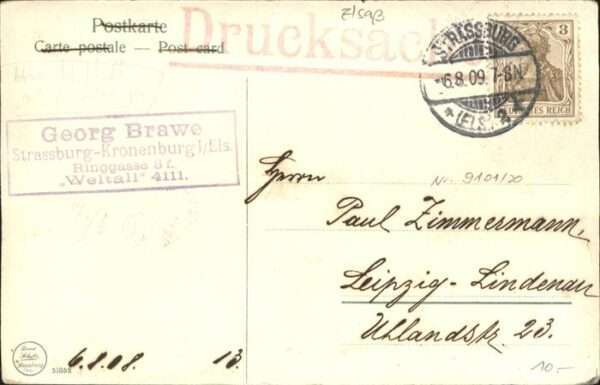 Elsaß
Postkarte
Carte postale — Post card
Drucksache
STRASSBURG
6.8.09. 7-8N.
(ELS.) 2
3
Georg Brawe
Strassburg-Kronenburg i/Els.
Ringgasse
"Weltall" 4111.
Herrn
No. 9101/20
Paul Zimmermann,
Leipzig-Lindenau
Uhlandstr. 23.
6.8.08. 13.
10.-